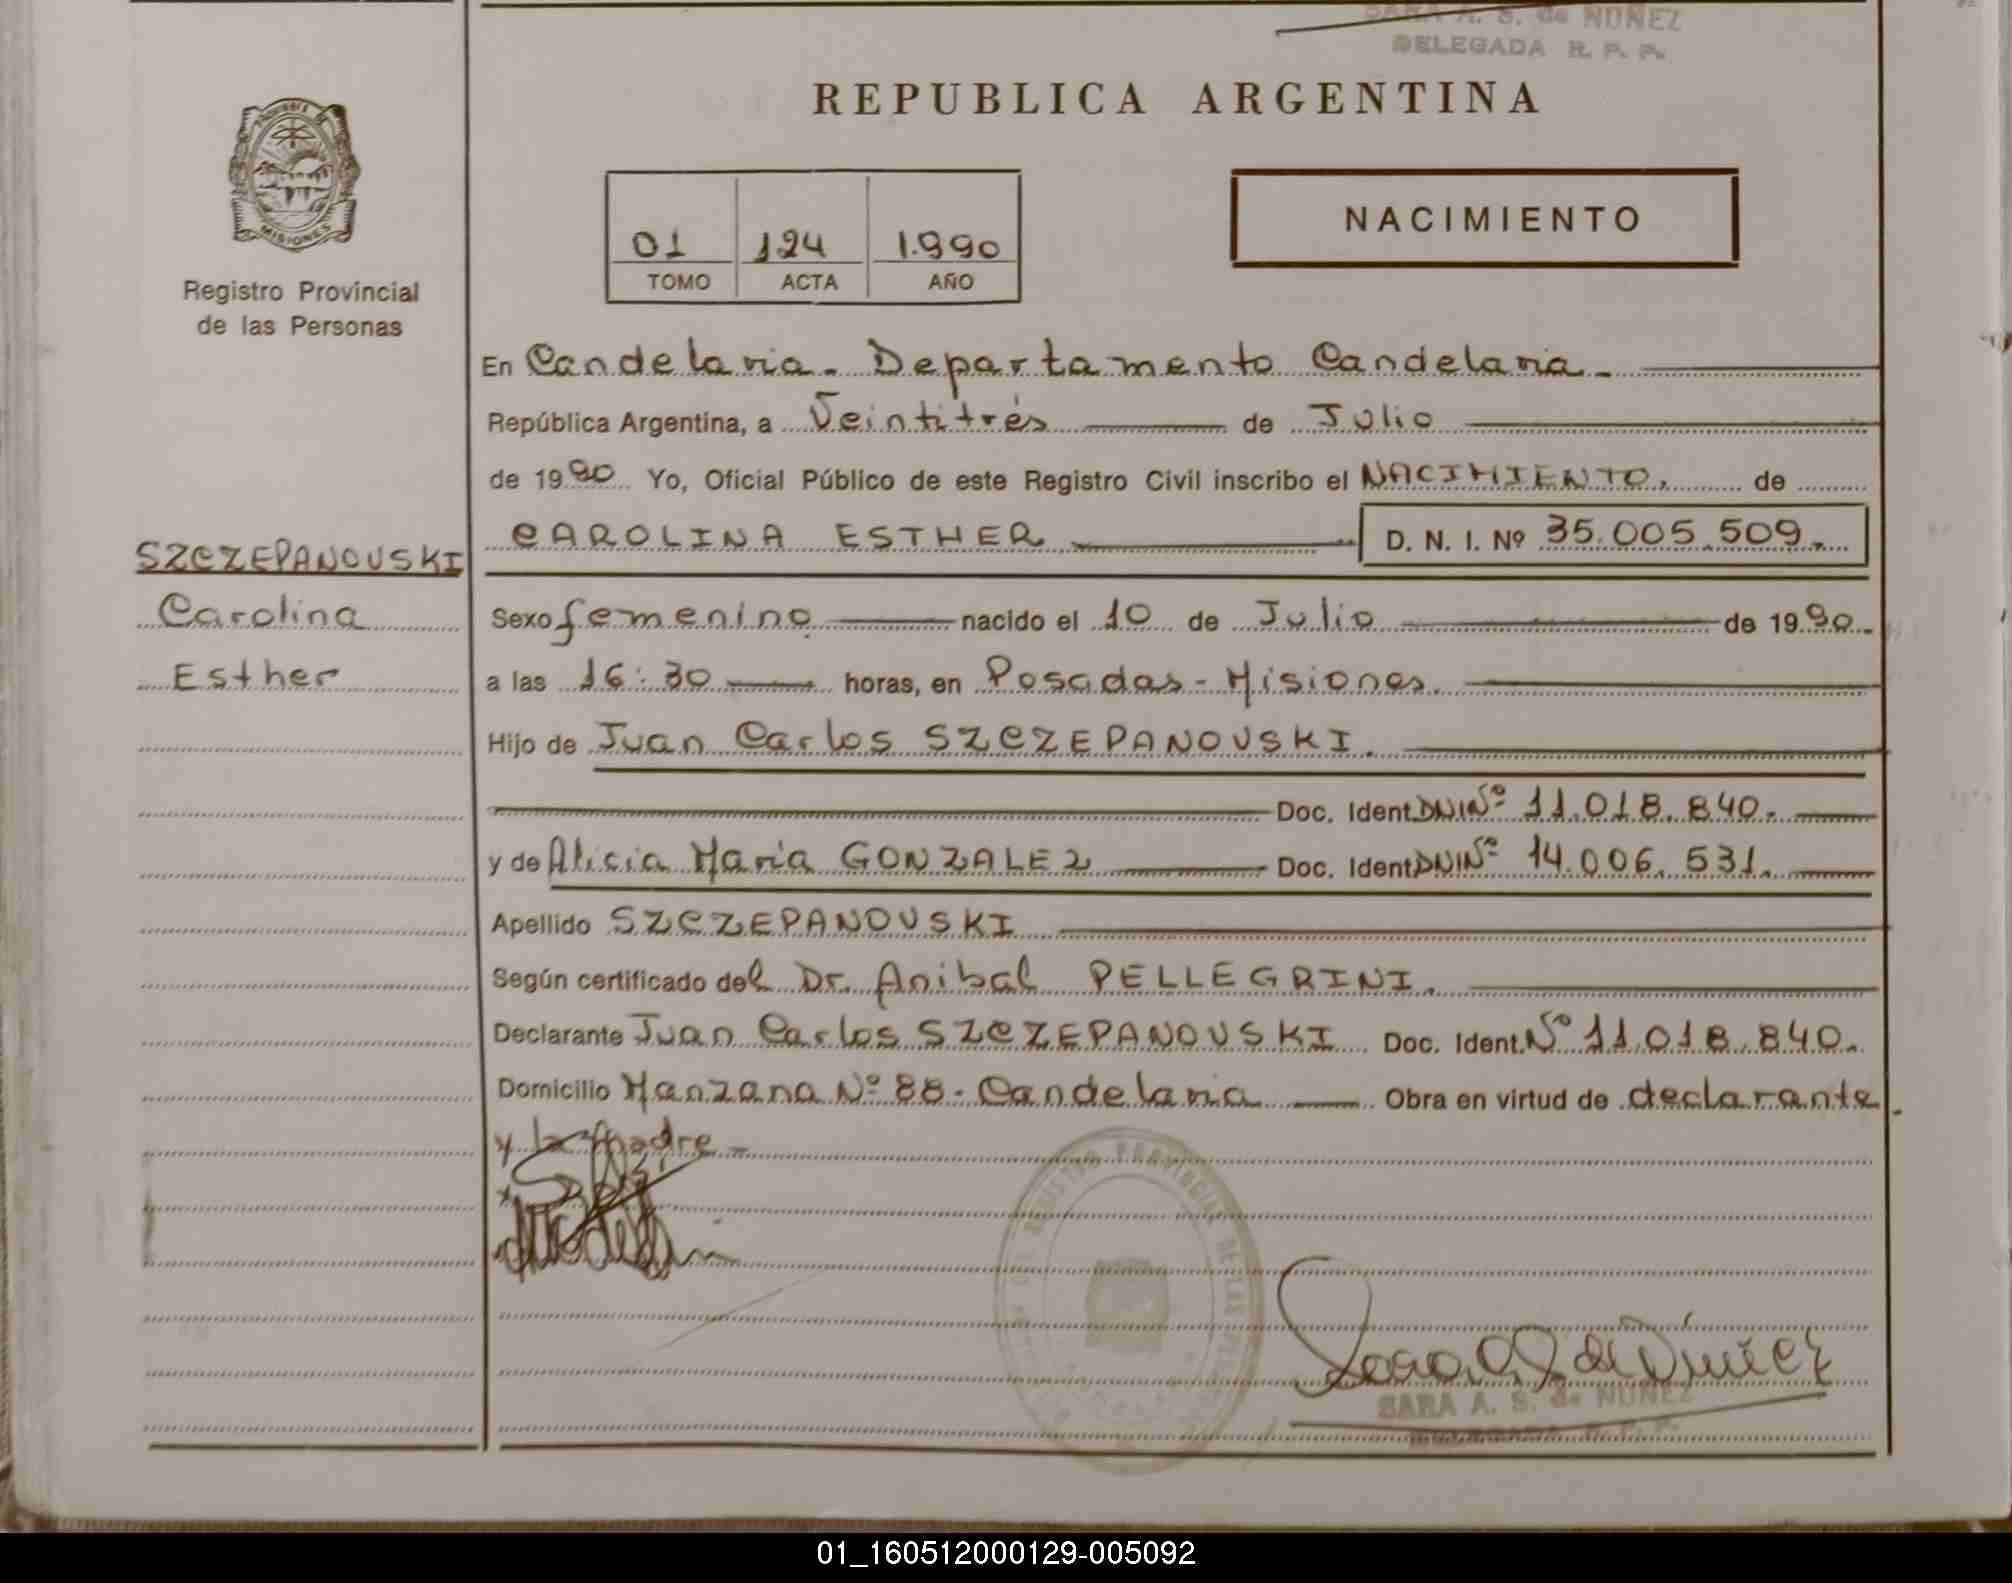 SARA A. S. de NUÑEZ
DELEGADA R. P. P.
REPUBLICA ARGENTINA
MISIONES
Registro Provincial
de las Personas
01 124 1.990
TOMO ACTA AÑO
NACIMIENTO
En Candelaria. Departamento Candelaria.
República Argentina, a Veintitrés de Julio
de 1990 Yo, Oficial Público de este Registro Civil inscribo el NACIMIENTO. de
CAROLINA ESTHER D. N. I. Nº 35.005.509.
SZCZEPANOVSKI
Carolina
Esther
Sexo femenino nacido el 10 de Julio de 1990
a las 16:30 horas, en Posadas - Misiones.
Hijo de Juan Carlos SZCZEPANOVSKI.
Doc. Ident. DNI Nº 11.018.840.
y de Alicia María GONZALEZ Doc. Ident. DNI Nº 14.006.531.
Apellido SZCZEPANOVSKI
Según certificado del Dr. Anibal PELLEGRINI.
Declarante Juan Carlos SZCZEPANOVSKI Doc. Ident. Nº 11.018.840.
Domicilio Manzana Nº 88 - Candelaria Obra en virtud de declarante
y la madre -
Sara A. S. de Núñez
SARA A. S. de NUÑEZ
DELEGADA R. P. P.
01_160512000129-005092